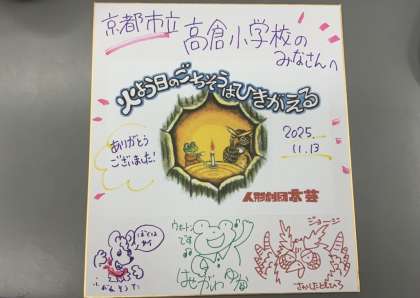 京都市立
高倉小学校の
みなさんへ
火よう日のごちそうはひきがえる
ありがとう
ございました!
2025.
11.13
人形劇団京芸
ウォートン
です
はせがわ
ジョージ